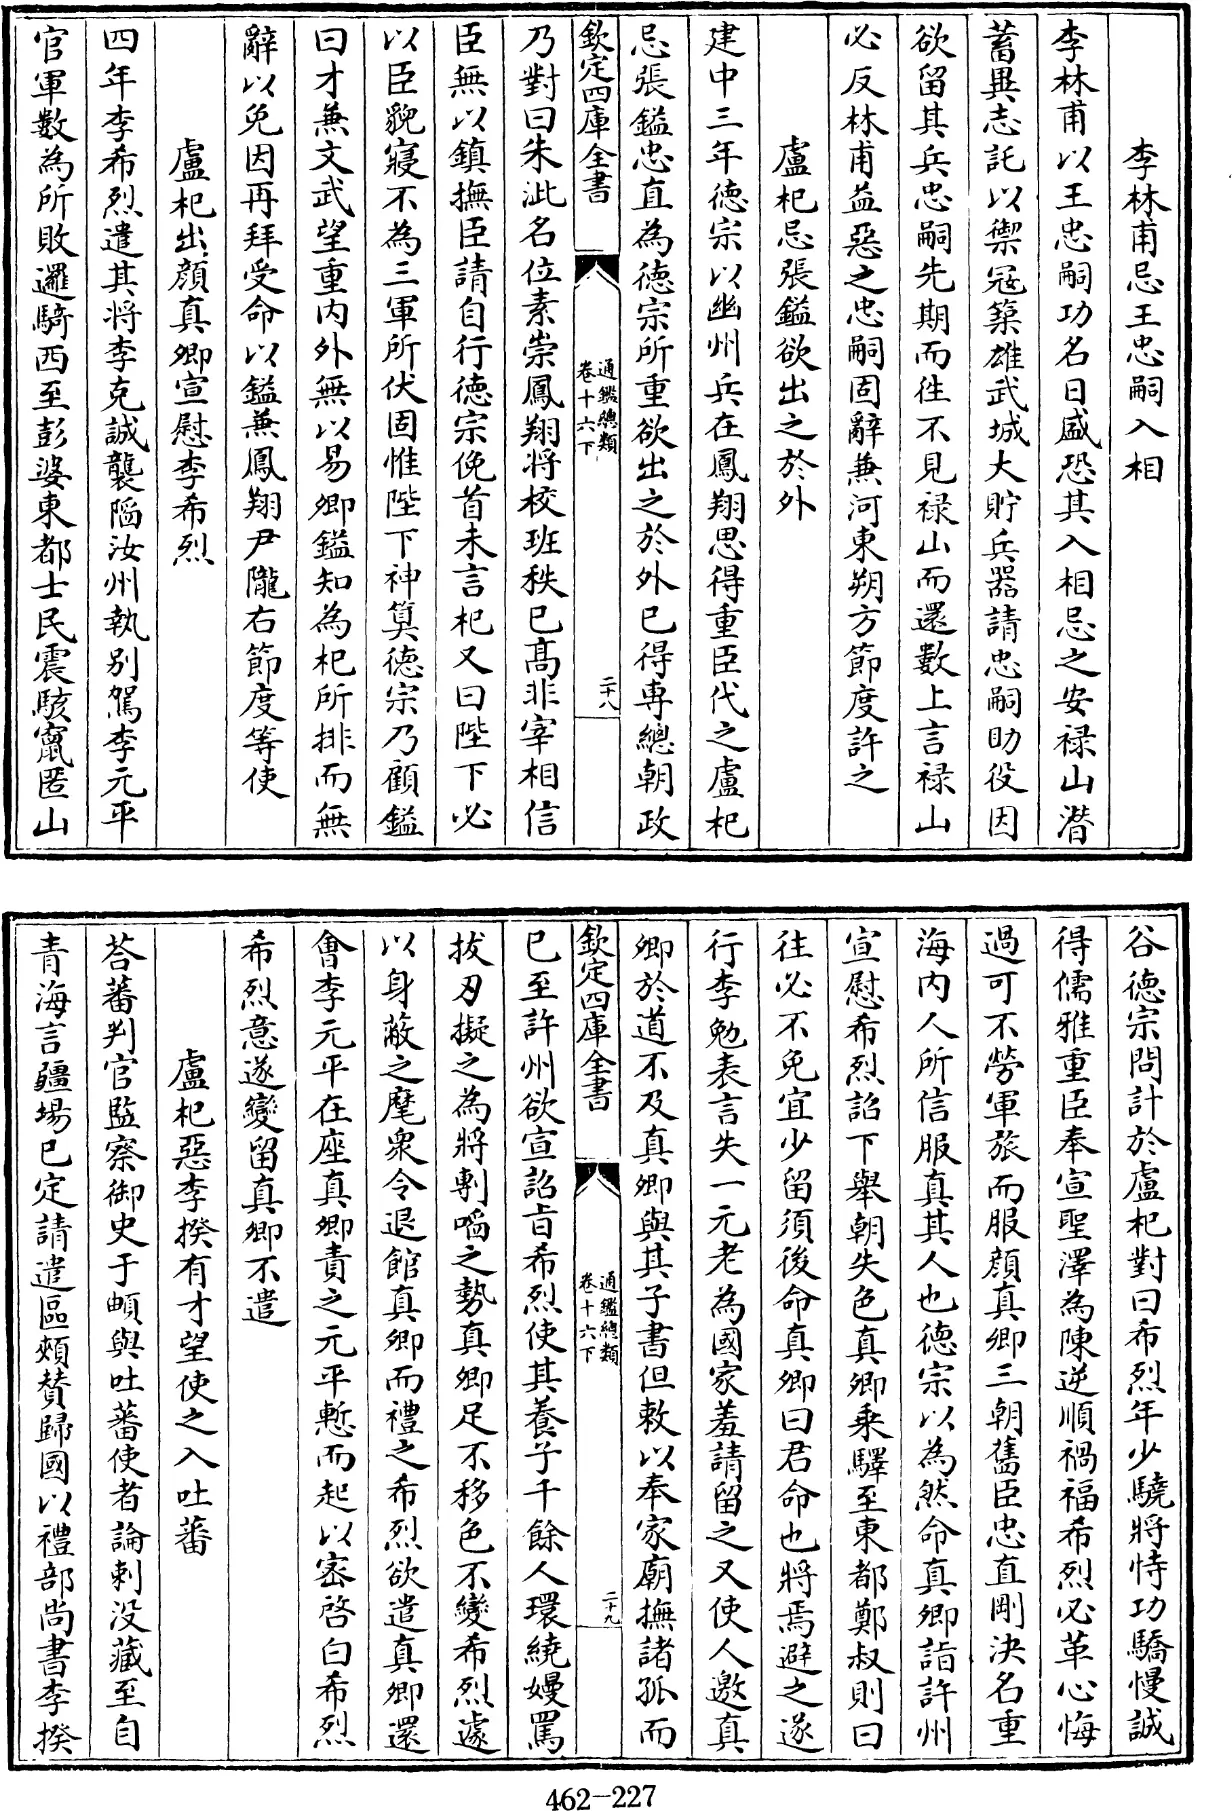 李林甫忌王忠嗣入相
李林甫以王忠嗣功名日盛恐其入相忌之安禄山潜
蓄異志託以禦冦築雄武城大貯兵器請忠嗣助役因
欲留其兵忠嗣先期而徃不見禄山而還數上言禄山
必反林甫益惡之忠嗣固辭兼河東朔方節度許之
盧杞忌張鎰欲出之於外
建中三年德宗以幽州兵在鳳翔思得重臣代之盧杞
忌張鎰忠直為德宗所重欲出之於外已得専總朝政
欽定四庫全書
通鑑總類
卷十六下
二十八
乃對曰朱泚名位素崇鳳翔將校班秩已髙非宰相信
臣無以鎮撫臣請自行德宗俛首未言杞又曰陛下必
以臣貌寢不為三軍所伏固惟陛下神算德宗乃顧鎰
曰才兼文武望重内外無以易卿鎰知為杞所排而無
辭以免因再拜受命以鎰兼鳳翔尹隴右節度等使
盧杞出顔真卿宣慰李希烈
四年李希烈遣其将李克誠襲陷汝州執别駕李元平
官軍數為所敗邏騎西至彭婆東都士民震駭竄匿山
谷德宗問計於盧杞對曰希烈年少驍將恃功驕慢誠
得儒雅重臣奉宣聖澤為陳逆順禍福希烈必革心悔
過可不勞軍旅而服顔真卿三朝舊臣忠直剛決名重
海内人所信服真其人也德宗以為然命真卿詣許州
宣慰希烈詔下舉朝失色真卿乘驛至東都鄭叔則曰
往必不免宜少留須後命真卿曰君命也將焉避之遂
行李勉表言失一元老為國家羞請留之又使人邀真
卿於道不及真卿與其子書但敕以奉家廟撫諸孤而
欽定四庫全書
通鑑總類
卷十六下
二十九
已至許州欲宣詔㫖希烈使其養子千餘人環繞嫚罵
拔刃擬之為將剸㗖之勢真卿足不移色不變希烈遽
以身蔽之麾衆令退館真卿而禮之希烈欲遣真卿還
㑹李元平在座真卿責之元平慙而起以宻啓白希烈
希烈意遂變留真卿不遣
盧杞惡李揆有才望使之入吐蕃
荅蕃判官監察御史于頔與吐蕃使者論剌没藏至自
青海言疆場已定請遣區頰賛歸國以禮部尚書李揆
462-227